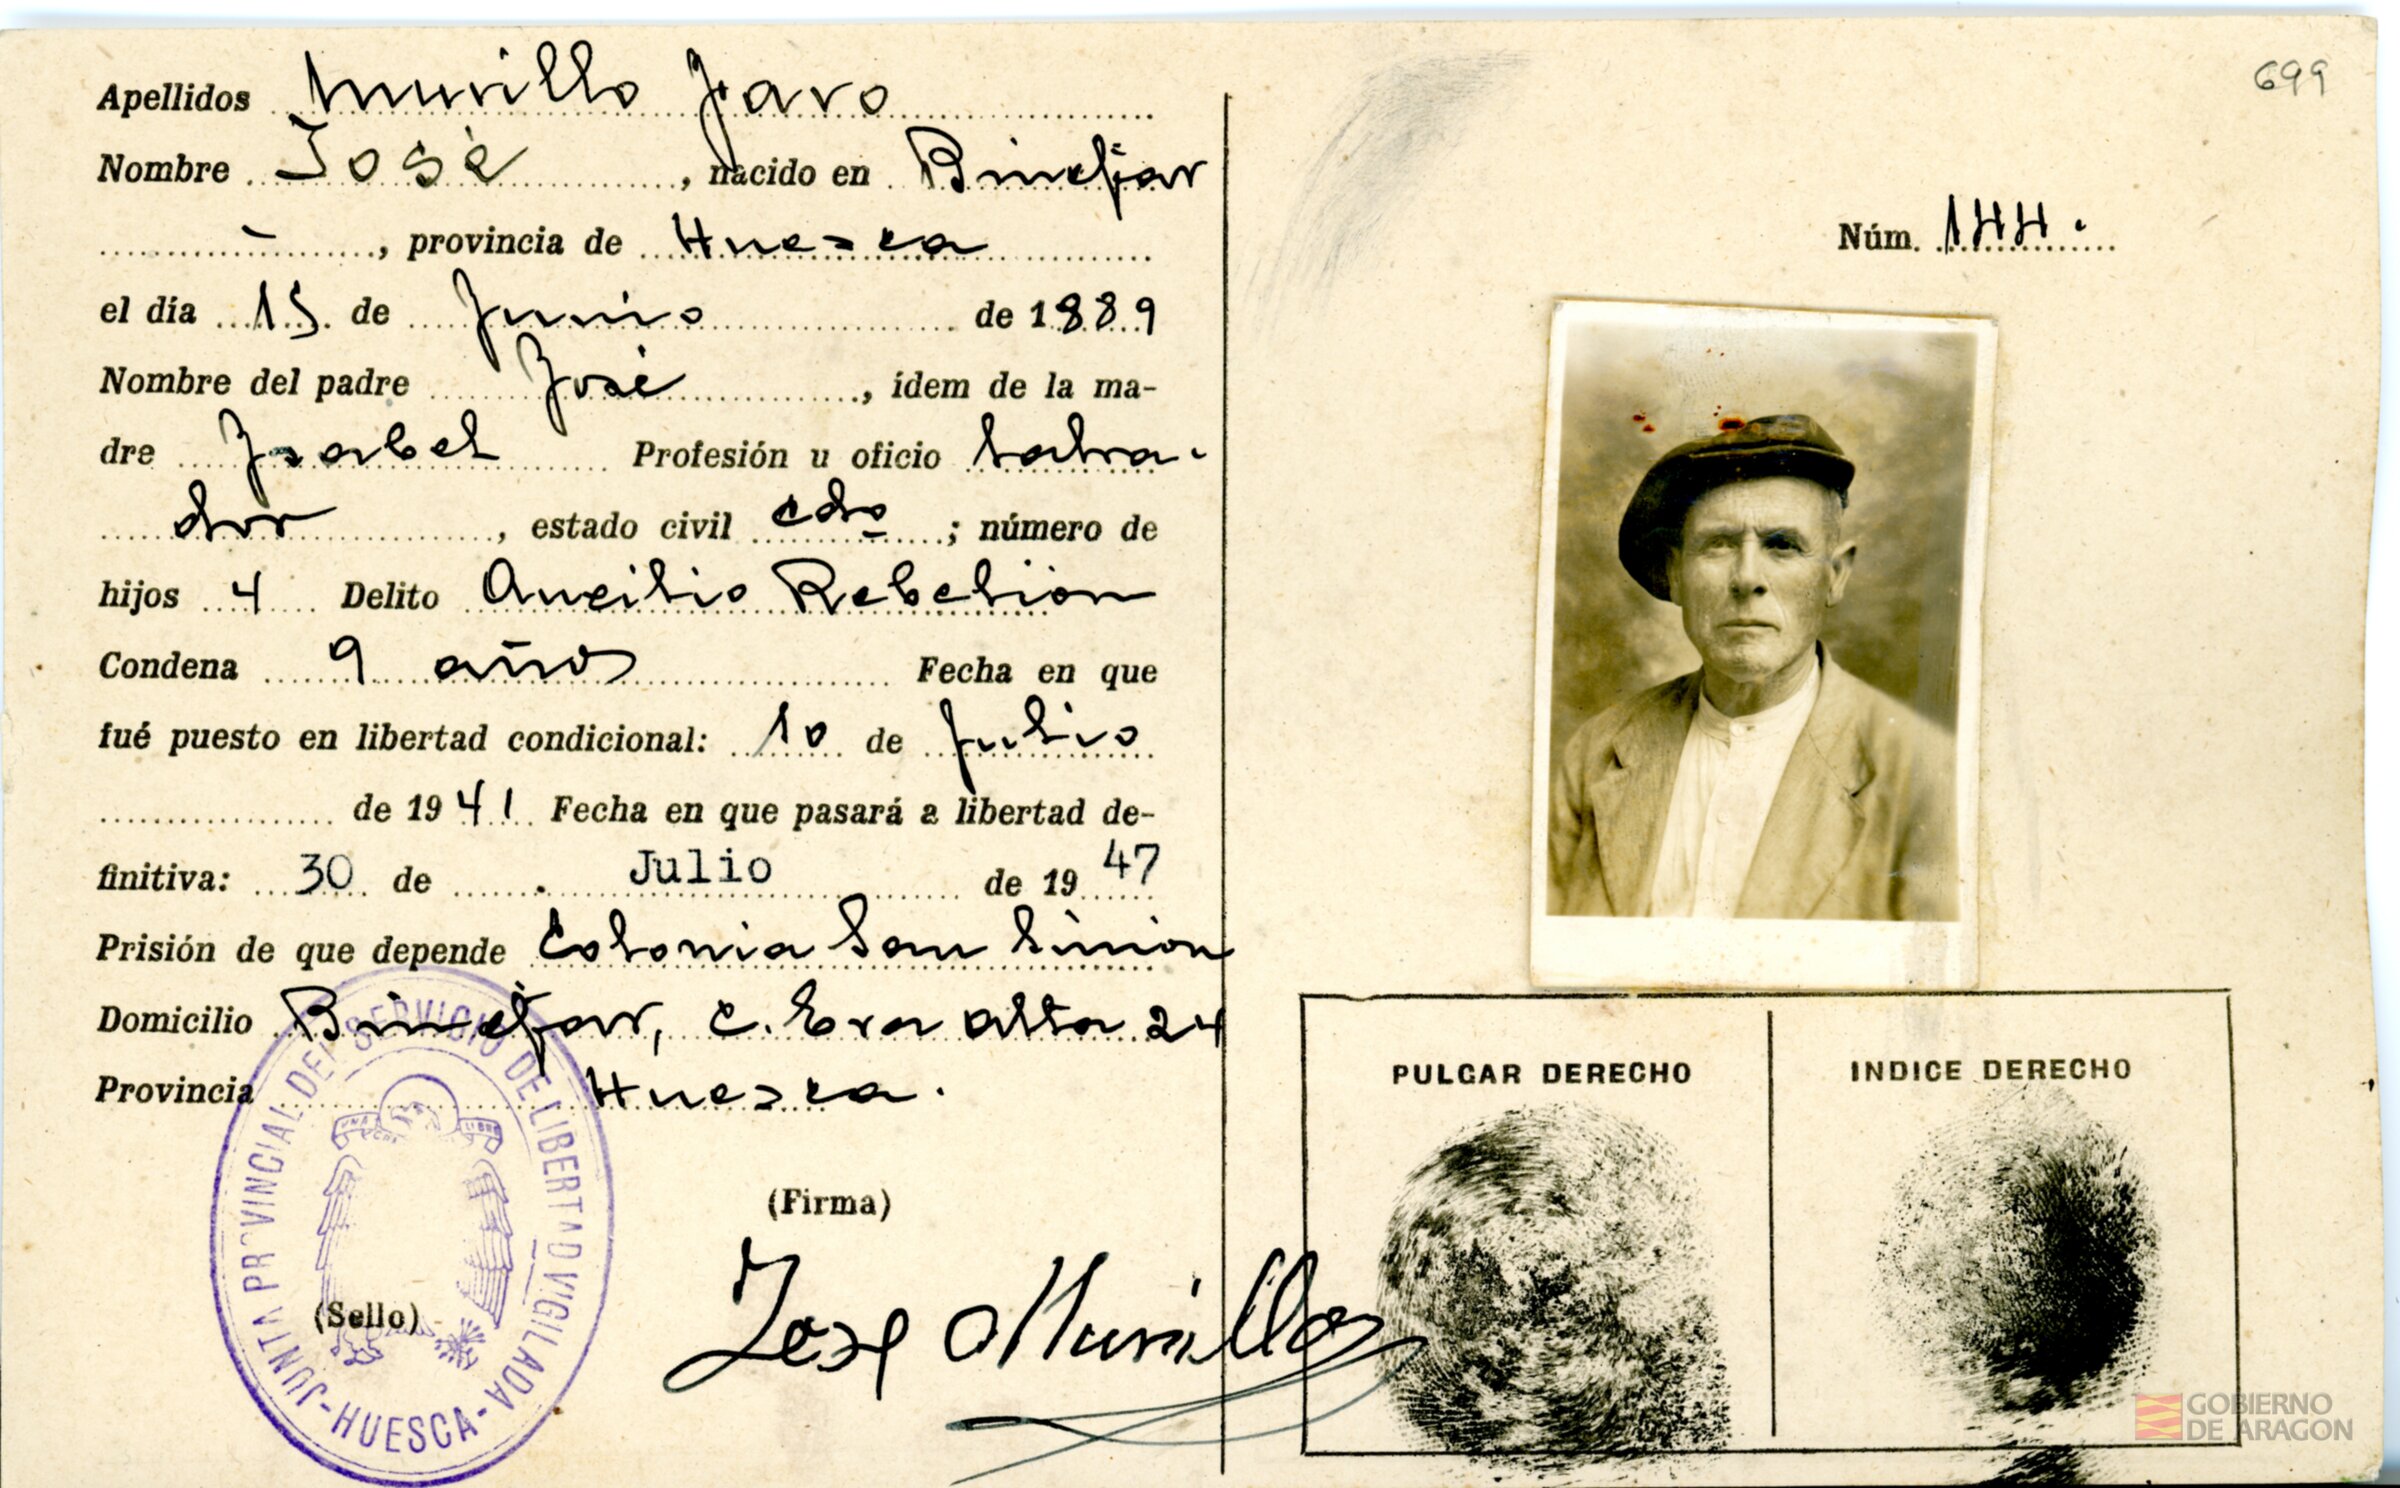 Apellidos Murillo Jaro
Nombre José, nacido en Binefar
-, provincia de Huesca
el día 15 de Junio de 1889
Nombre del padre José, ídem de la ma-
dre Isabel Profesión u oficio Labra-
dor, estado civil cdo; número de
hijos 4 Delito Auxilio Rebelión
Condena 9 años Fecha en que
fué puesto en libertad condicional: 10 de Julio
de 1941 Fecha en que pasará a libertad de-
finitiva: 30 de Julio de 1947
Prisión de que depende Colonia San Simón
Domicilio Binefar, C. Era alta 24
Provincia Huesca.
(Firma)
José Murillo
(Sello)
JUNTA PROVINCIAL DEL SERVICIO DE LIBERTAD VIGILADA
-HUESCA-
UNA LIBRE
699
Núm. 144.
PULGAR DERECHO
INDICE DERECHO
GOBIERNO
DE ARAGON